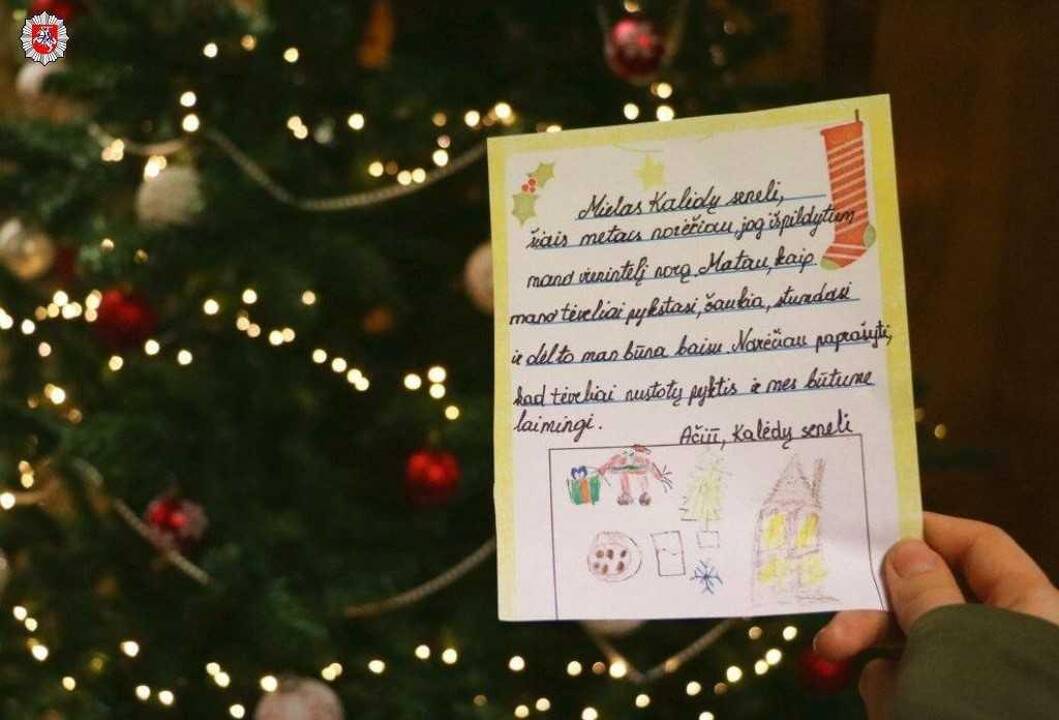 Mielas Kalėdų seneli,
šiais metais norėčiau, jog išpildytum
mano vienintelį norą. Matau, kaip
mano tėveliai pykstasi, šaukia, stumdosi
ir dėl to man būna baisu. Norėčiau paprašyti,
kad tėveliai nustotų pyktis ir mes būtume
laimingi.
Ačiū, Kalėdų seneli